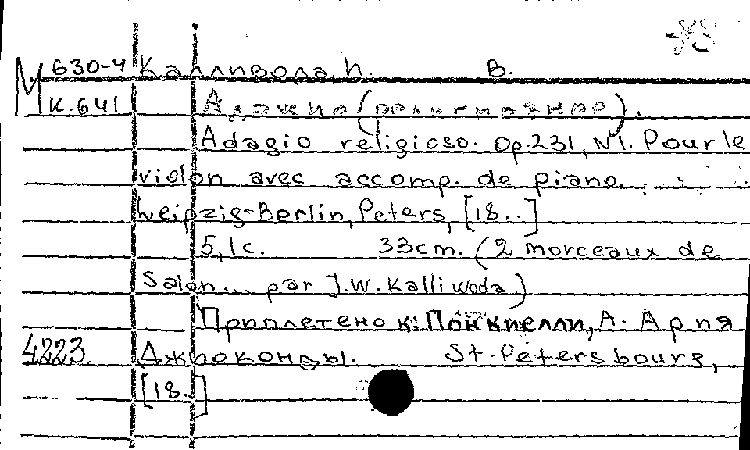 М 630-4 Калливода И. В.
К.641 Адажио (религиозное).
Adagio religioso. Op.231, N1. Pour le
violon avec accomp. de piano.
Leipzig-Berlin, Peters, [18..]
5,1c. 33cm. (2 morceaux de
Salon... par J.W. Kalliwoda)
Приплетено к: Понкиелли, А. Ария
4223. Джиоконды. St-Petersbourg,
[18..]